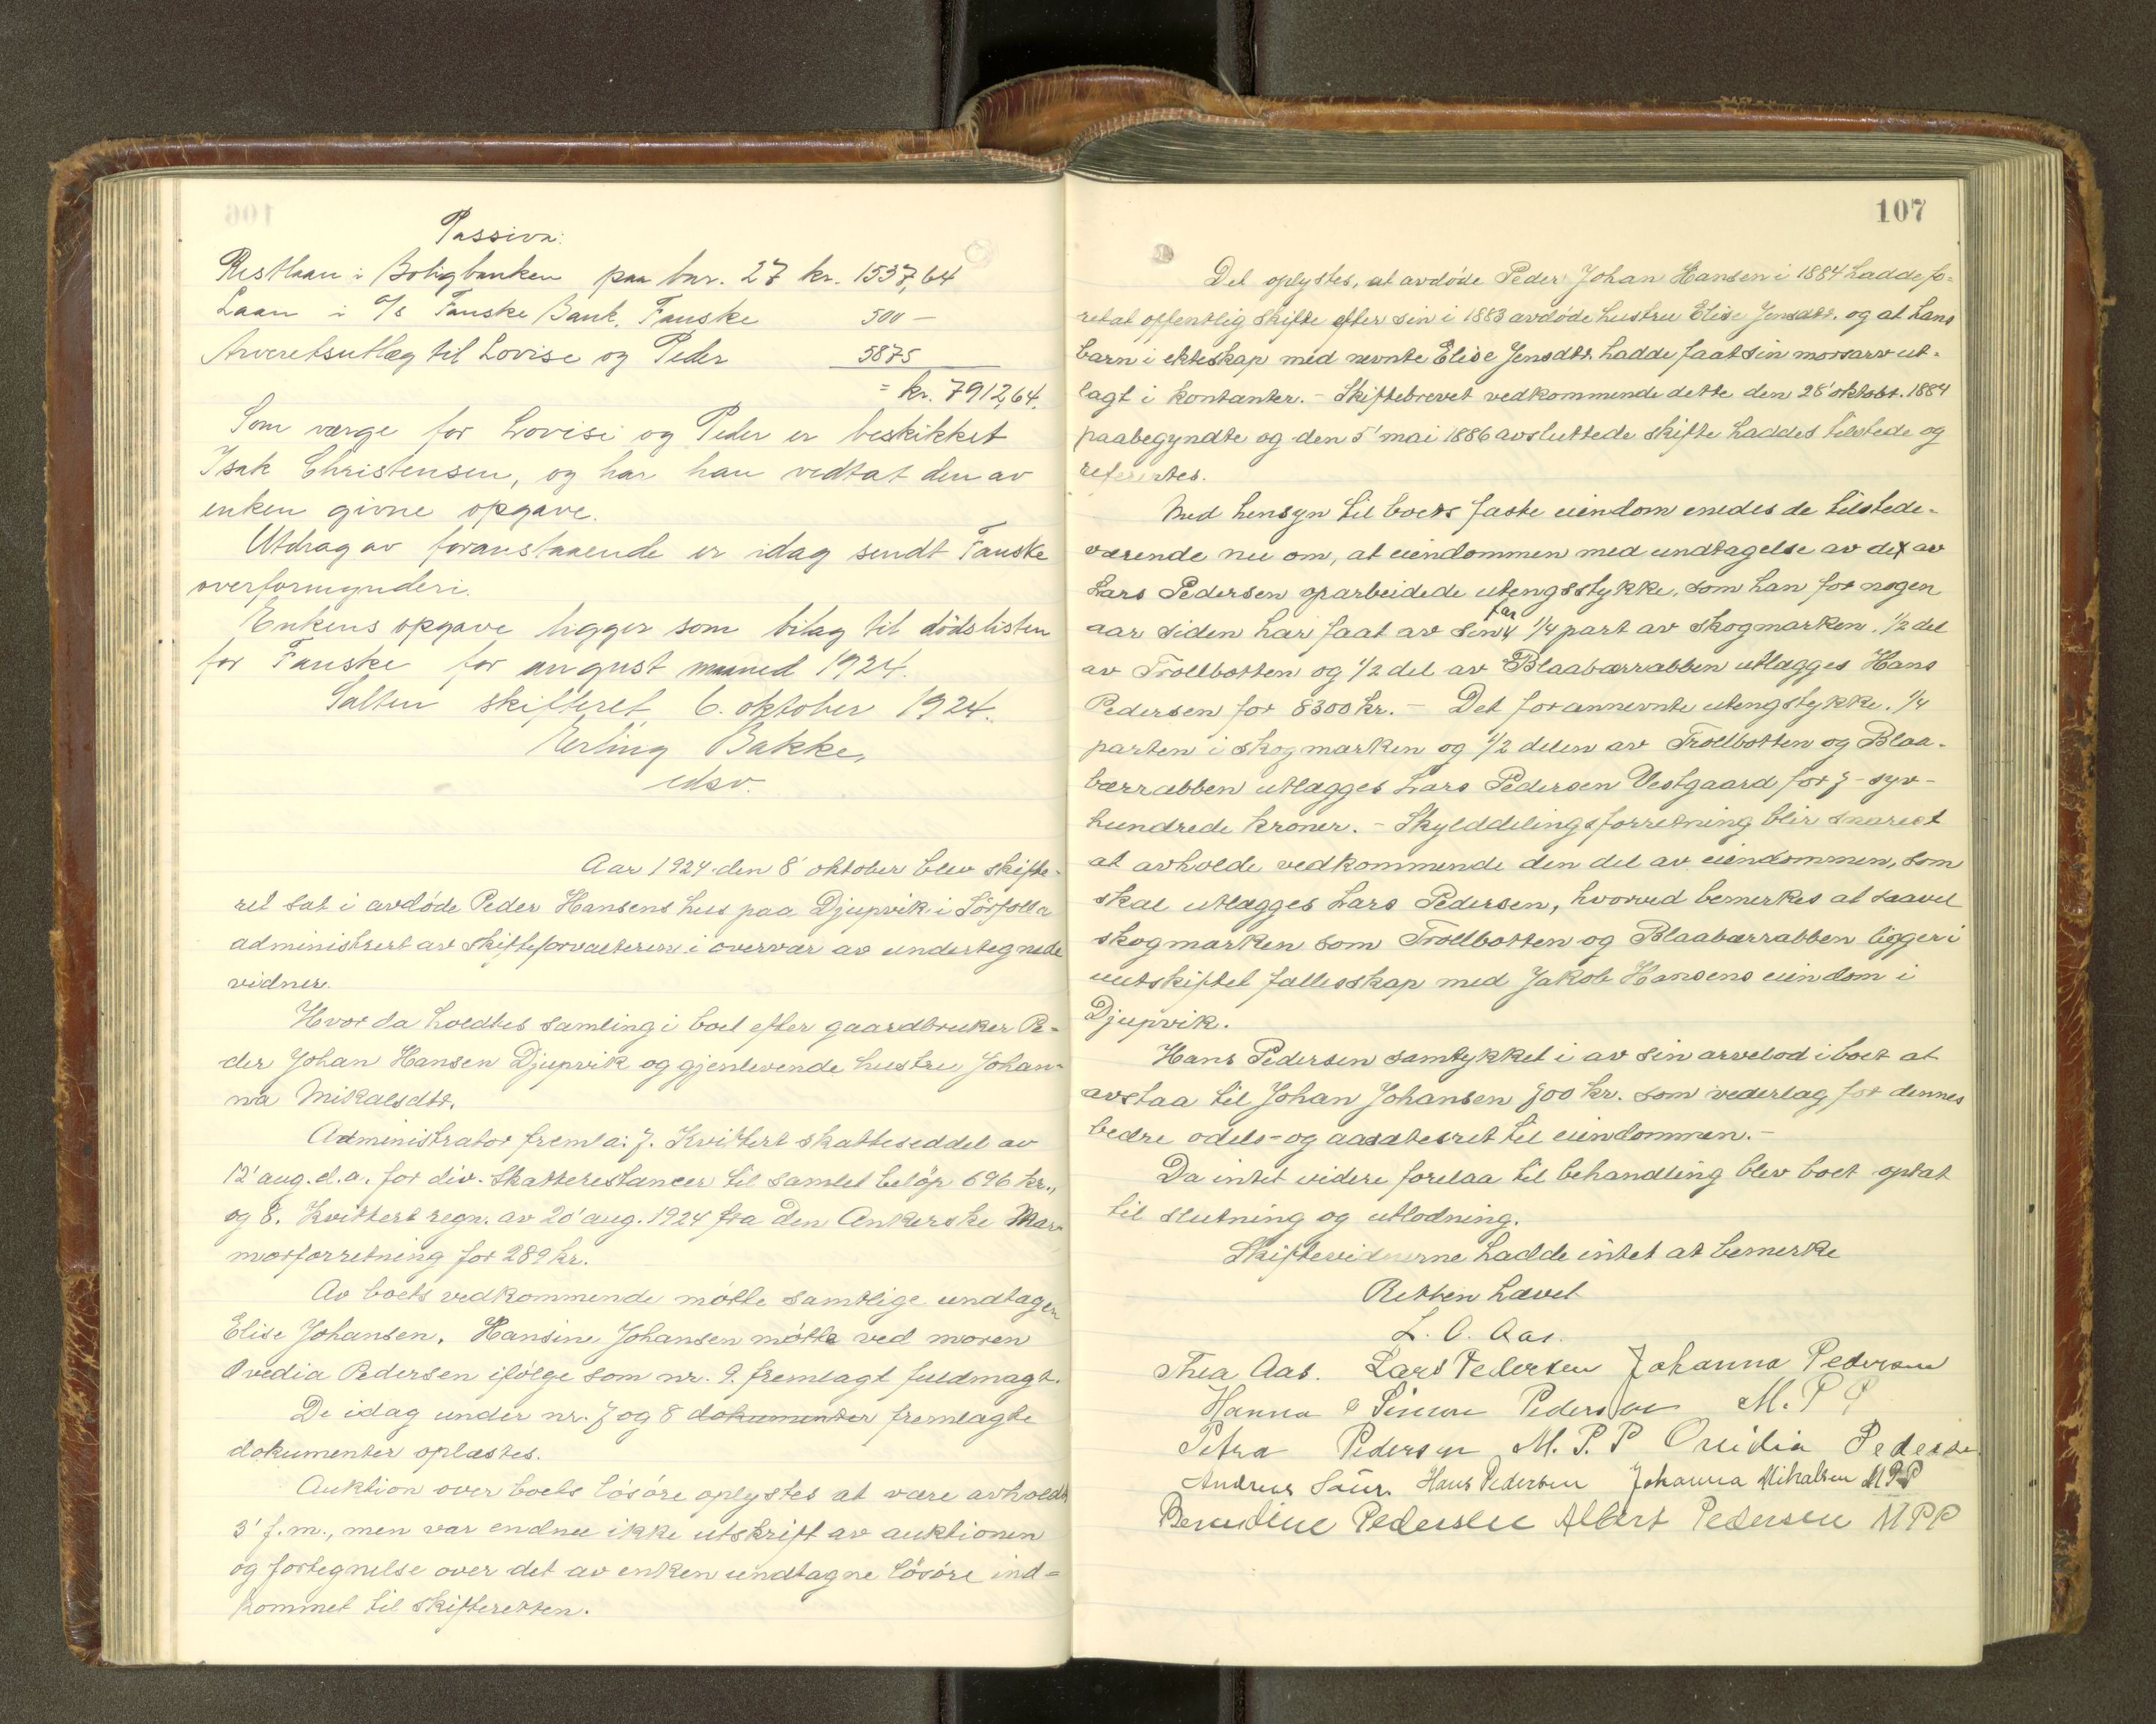 106
Passiva:
Restlaan i Boligbanken paa bnr. 27 kr. 1537,64
Laan i A/s Fauske Bank, Fauske 500 —
Arveretsutlæg til Lovise og Peder 5875
= kr. 7912,64.
Som værge for Lovise og Peder er beskikket
Isak Christensen, og har han vedtat den av
enken givne opgave.
Utdrag av foranstaaende er idag sendt Fauske
overformynderi.
Enkens opgave ligger som bilag til dödslisten
for Fauske for august maaned 1924.
Salten skifteret, 6. oktober 1924.
Erling Bakke,
edsv.
Aar 1924 den 8' oktober blev skifte-
ret sat i avdøde Peder Hansens hus paa Djupvik i Sörfolla
administrert av skifteforvalteren i overvær av undertegnede
vidner.
Hvor da holdtes samling i boet efter gaardbruker Pe=
der Johan Hansen Djupvik og gjenlevende hustru Johan-
na Mikalsdtr.
Administrator fremla: 7. Kvittert skatteseddel av
12' aug. d.a. for div. Skatterestancer til samlet beløp 696 kr.,
og 8. Kvittert regn. av 20' aug. 1924 fra Den Ankerske Mar-
morforretning for 289 kr.
Av boets vedkommende mötte samtlige undtagen
Elise Johansen. Hansine Johansen mötte ved moren
Ovedia Pedersen ifölge som nr. 9. fremlagt fuldmagt.
De idag under nr. 7 og 8 dokumenter fremlagte
dokumenter oplæstes.
Auktion over boets lösöre oplystes at være avholdt
3' f.m., men var endnu ikke utskrift av auktionen
og fortegnelse over det av enken undtagne lösöre ind=
kommet til skifteretten.
107
Det oplystes, at avdøde Peder Johan Hansen i 1884 hadde fo-
retat offentlig skifte efter sin i 1883 avdøde hustru Elise Jensdtr. og at hans
barn i ekteskap med nevnte Elise Jensdtr. hadde faat sin morsarv ut-
lagt i kontanter. – Skiftebrevet vedkommende dette den 28' oktobr. 1884
paabegyndte og den 5' mai 1886 avsluttede skifte haddes tilstede og
refertes.
Med hensyn til boets faste eiendom enedes de tilstede-
værende nu om, at eiendommen med undtagelse av det av
Lars Pedersen oparbeidede utengsstykke, som han for nogen
aar siden har faat av sin far 1/4 part av skogmarken, 1/2 del
av Trollbotten og 1/2 del av Blaabærrabben utlægges Hans
Pedersen for 8300 kr. – Det forannevnte utengstykke, 1/4
parten i skogmarken og 1/2 delen av Trollbotten og Blaa-
bærrabben utlægges Lars Pedersen Vestgaard for 7 – syv –
hundrede kroner. – Skylddelingsforretning blir snarest
at avholde vedkommende den del av eiendommen, som
skal utlægges Lars Pedersen, hvorved bemerkes at saavel
skogmarken som Trollbotten og Blaabærrabben ligger i
uutskiftet fællesskap med Jakob Hansens eiendom i
Djupvik.
Hans Pedersen samtykket i av sin arvelod i boet at
avstaa til Johan Johansen 700 kr. som vederlag for dennes
bedre odels- og aasætesret til eiendommen. –
Da intet videre forelaa til behandling blev boet optat
til slutning og utlodning.
Skiftevidnerne hadde intet at bemerke
Retten hævet
L. O. Aas.
Thea Aas. Lars Pedersen Johanna Pedersen
Hanna Pedersen M. P. P
Petra Pedersen M. P. P Ovidia Pedersen
Andreas Hans Pedersen Johanna Mikalsen MPP
Berntine Pedersen Albert Pedersen MPP